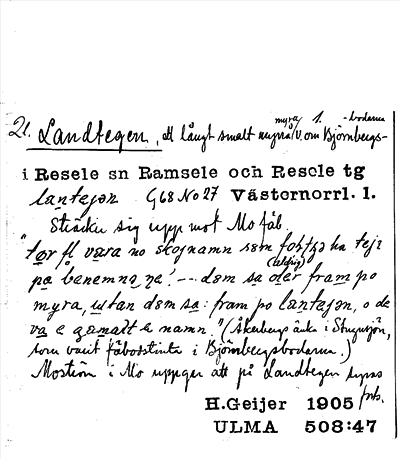 myra, l. -bodarna
21. Landtegen, ett långt smalt myrdrå V. om Björnbergs-
i Resele sn Ramsele och Resele tg
lantegən G68 No 27 Västernorrl. l.
Sträcker sig upp mot Mo fäb
"tər fl vara no skognamn səm
(aldrig)
pa benemna ne! -- dəm sa der fram po
myra, utan dəm sa: fram po lantegən, o de
va e gamalt e namn." (Åkerbergs änka i Stugusjön,
som varit fäbodstinta i Björnbergsbodarna.)
Moström i Mo uppger att på Landtegen synas
H.Geijer 1905
ULMA 508:47